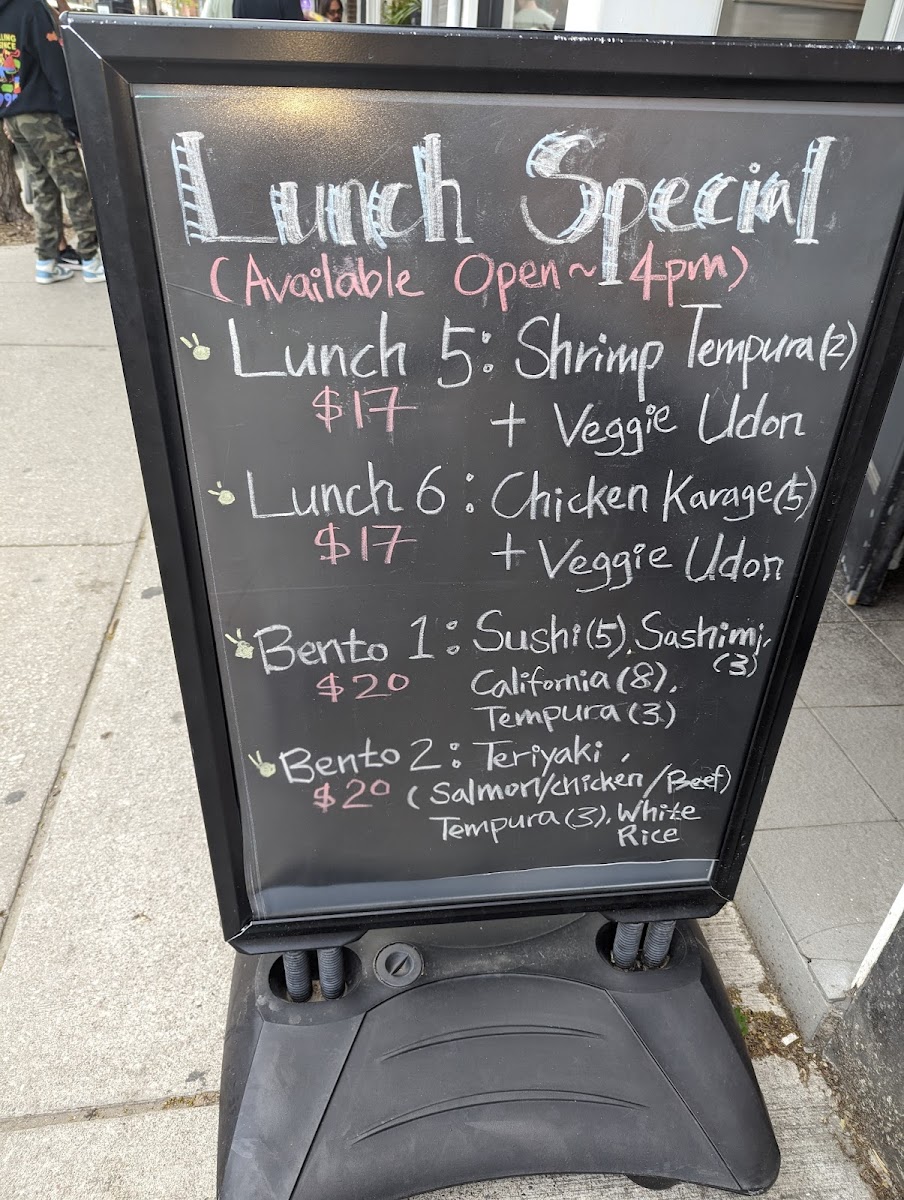 Lunch Special
(Available Open~4pm)
Lunch 5: Shrimp Tempura(2)
$17 + Veggie Udon
Lunch 6: Chicken Karage(5)
$17 + Veggie Udon
Bento 1: Sushi(5), Sashimi,
(3)
$20 California(8),
Tempura(3)
Bento 2: Teriyaki,
$20 (Salmon/chicken/Beef)
Tempura(3), White
Rice